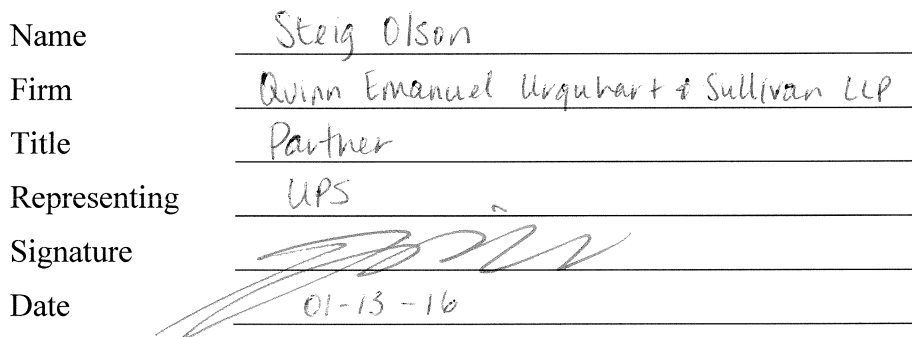 Name Steig Olson
Firm Quinn Emanuel Urquhart & Sullivan LLP
Title Partner
Representing UPS
Signature
Date 01-13-16